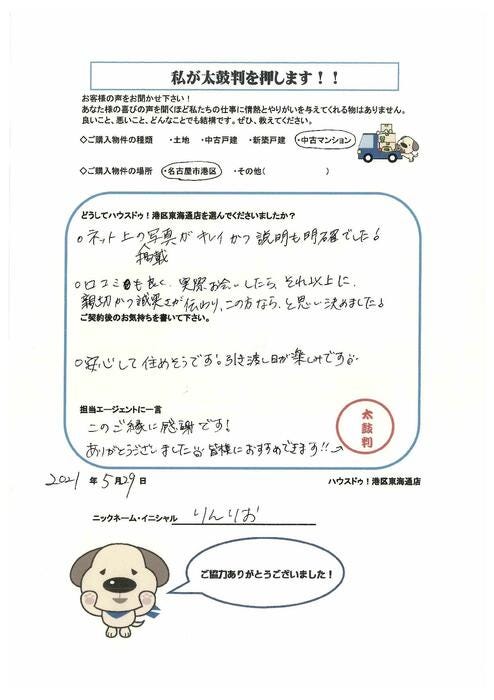 私が太鼓判を押します！！
お客様の声をお聞かせ下さい！
あなた様の喜びの声を聞くほど私たちの仕事に情熱とやりがいを与えてくれる物はありません。
良いこと、悪いこと、どんなことでも結構です。ぜひ、教えてください。
◇ご購入物件の種類 ・土地 ・中古戸建 ・新築戸建 ・中古マンション
◇ご購入物件の場所 ・名古屋市港区 ・その他( )
どうしてハウスドゥ！港区東海通店を選んでくださいましたか？
○ネット上の写真がキレイかつ説明も明確でした！
掲載
○口コミも良く、実際お会いしたら、それ以上に、
親切かつ誠実さが伝わり、この方なら、と思い決めました！
ご契約後のお気持ちを書いて下さい。
○安心して住めそうです！引き渡し日が楽しみです
担当エージェントに一言
このご縁に感謝です！
ありがとうございました 皆様におすすめできます!!→
太鼓判
2021年5月29日
ハウスドゥ！港区東海通店
ニックネーム・イニシャル りんりお
ご協力ありがとうございました！